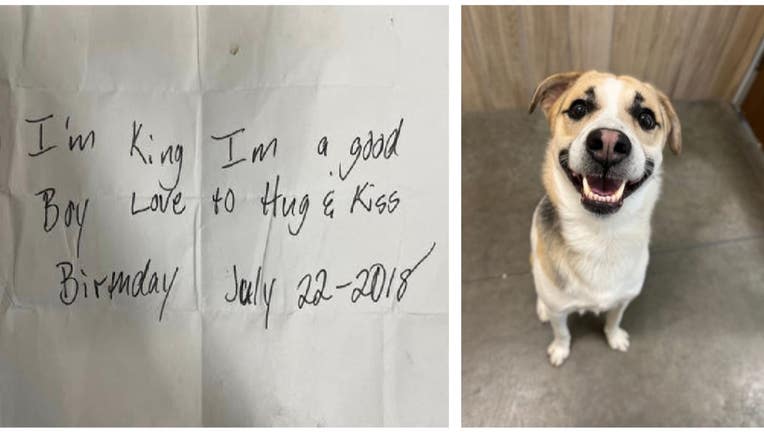 I'm King Im a good
Boy Love to Hug & Kiss
Birthday July 22-2018